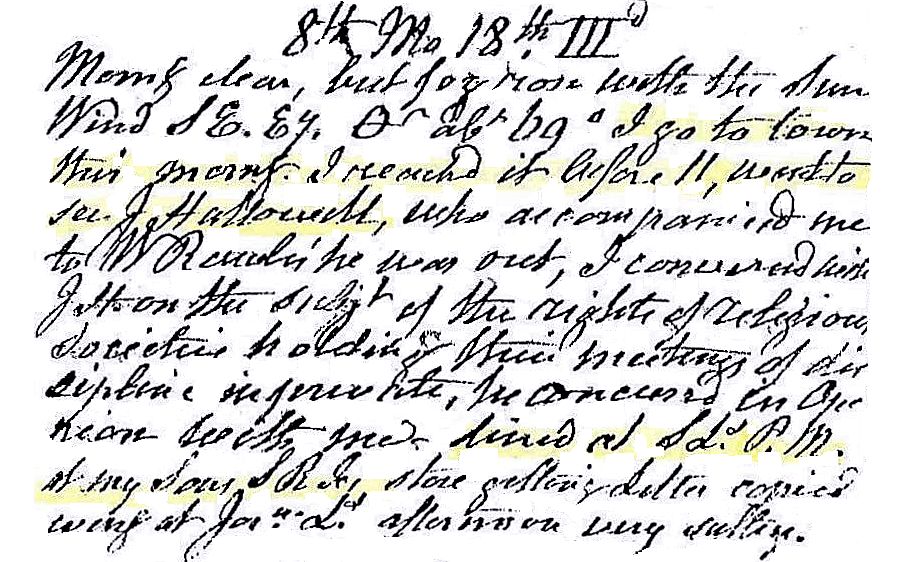 8th Mo, 18th. III d
Morng clear, but fog rose with the Sun
Wind S E. Ey. abt 69° I go to town
this morng. I reach'd it before 11, went to
see J Hallowell, who accompanied me
to W Rawls' he was out, I conversed with
J H on the subjt of the rights of religious
societies holding their meetings of dis
cipline in private, he concurd in Opi
nion with me - dined at S Ls. P. M.
at my Sons, S R Fs, store getting Letter copied
eveng at Jos. Ls. afternoon very sultry.